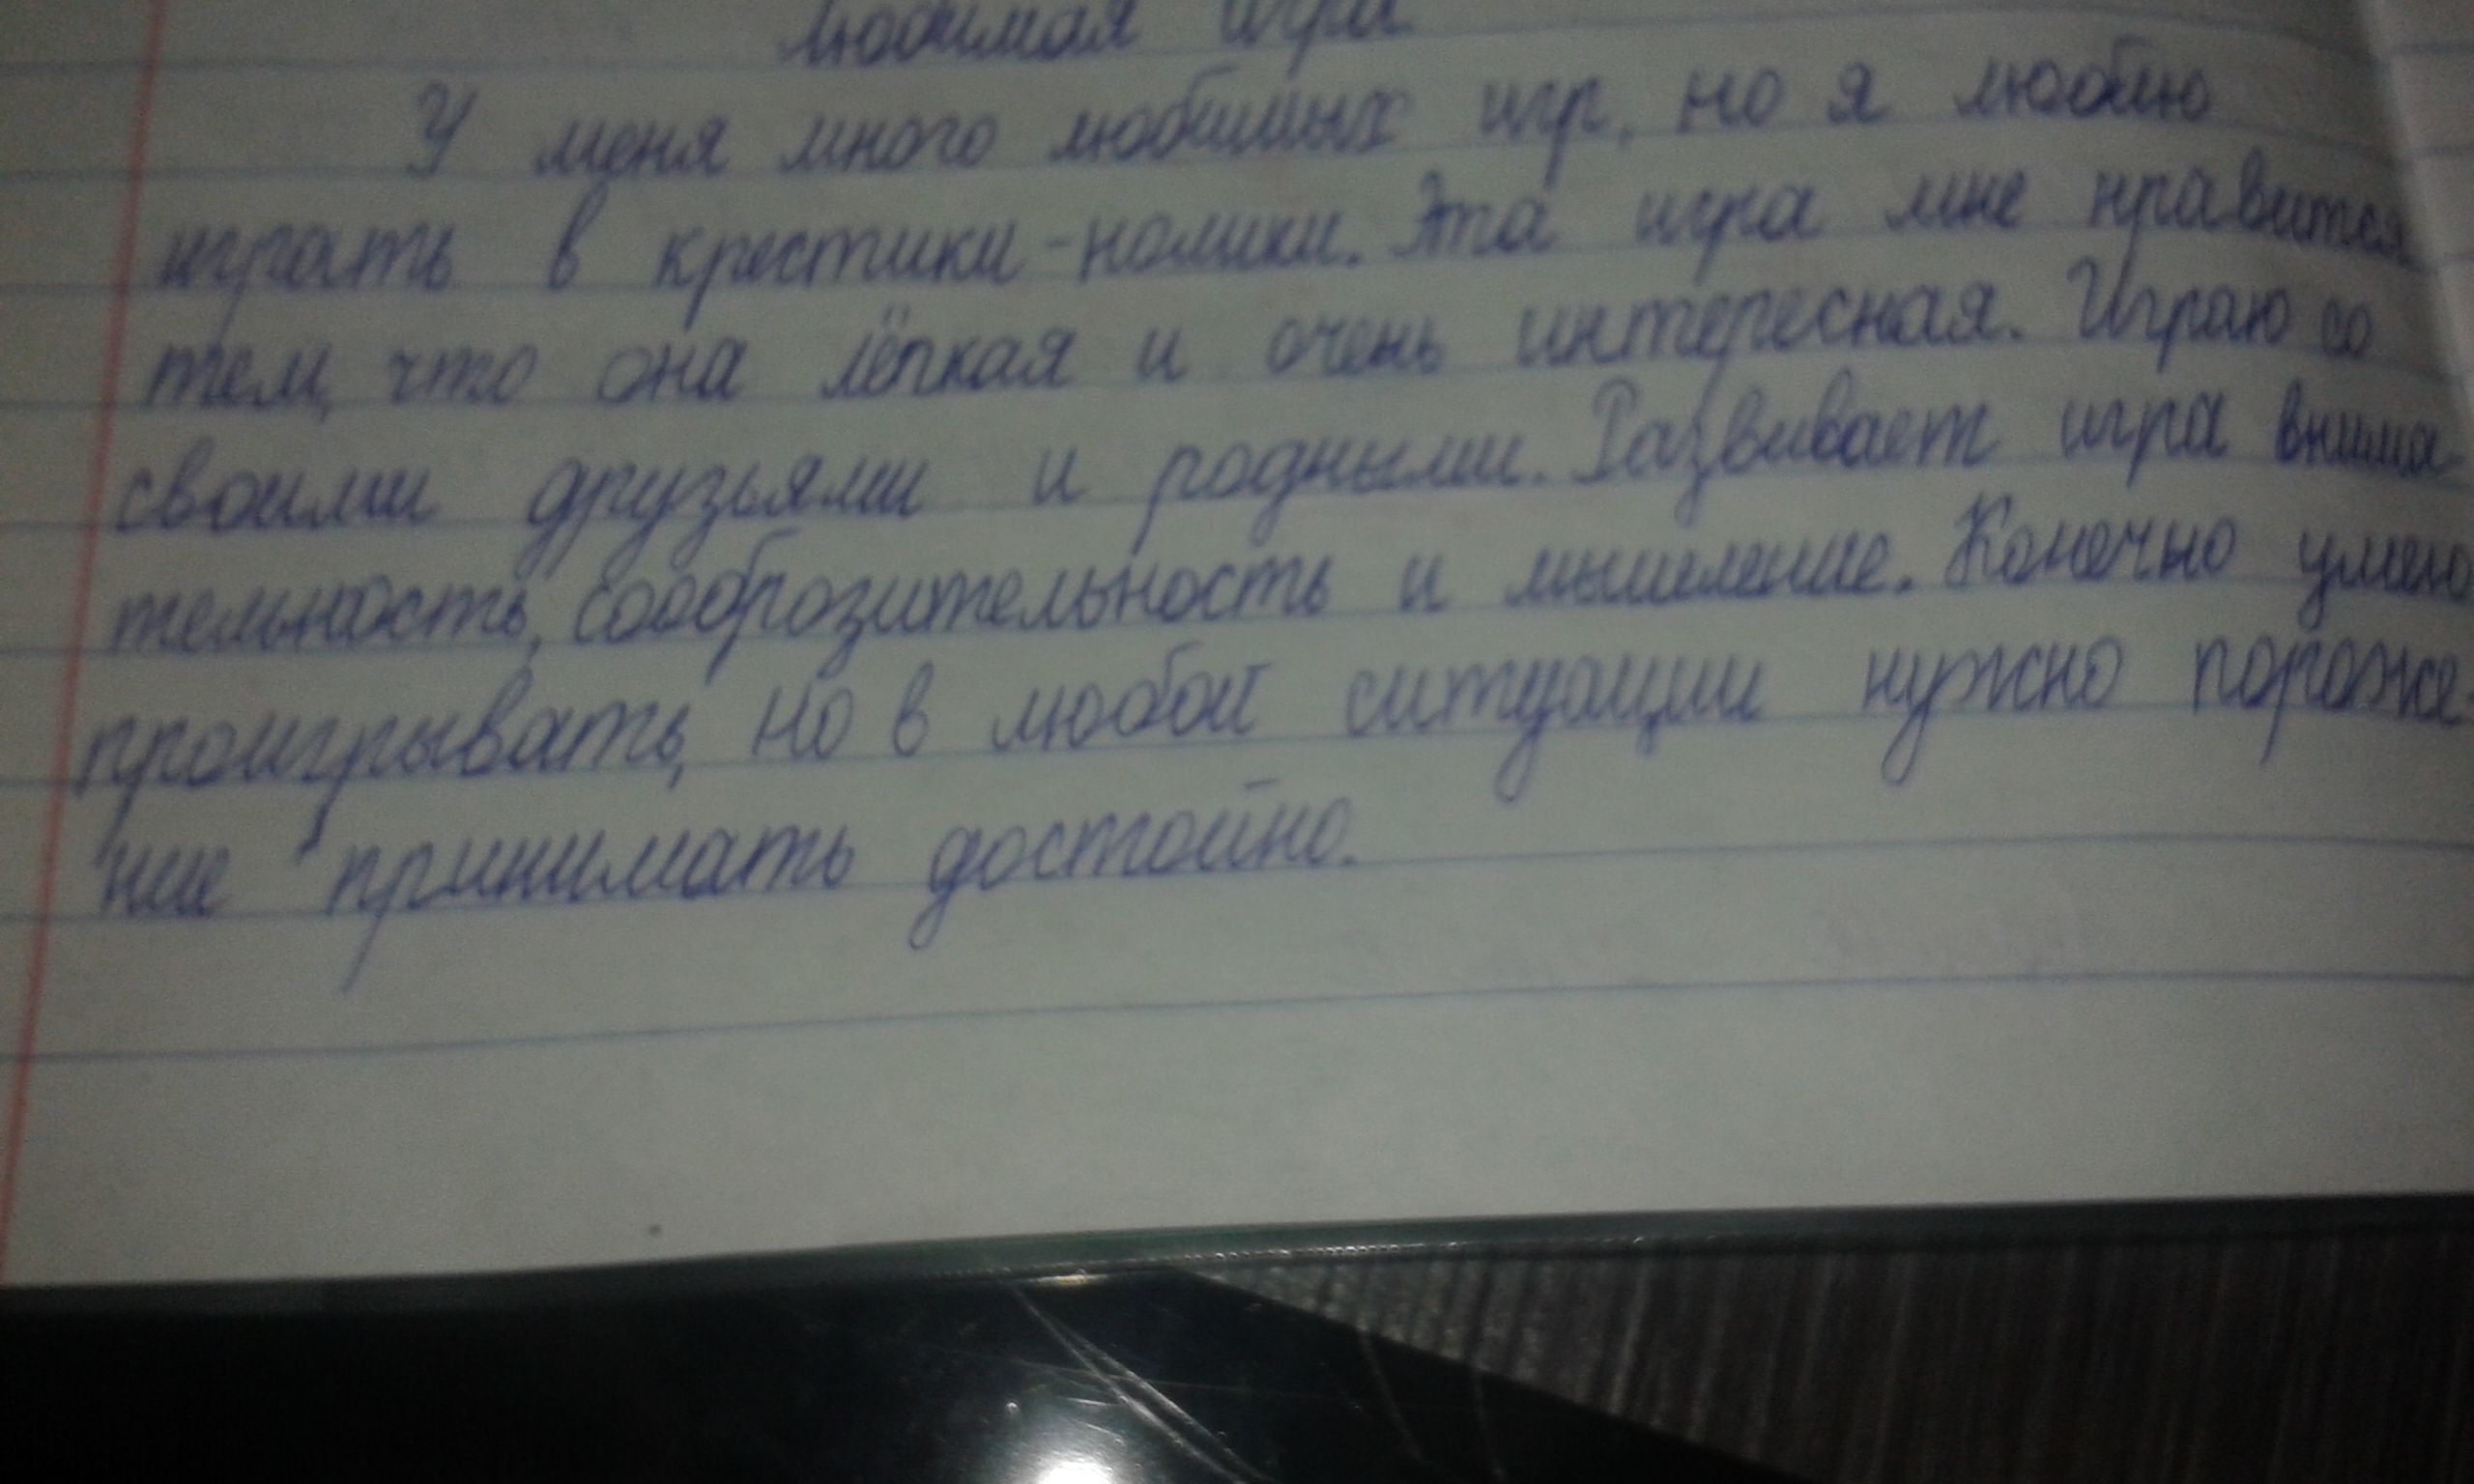 Любимая игра
У меня много любимых игр, но я люблю
играть в крестики-нолики. Эта игра мне нравится
тем, что она лёгкая и очень интересная. Играю со
своими друзьями и родными. Развивает игра внима-
тельность, сообразительность и мышление. Конечно умею
проигрывать, но в любой ситуации нужно пораже-
ние принимать достойно.